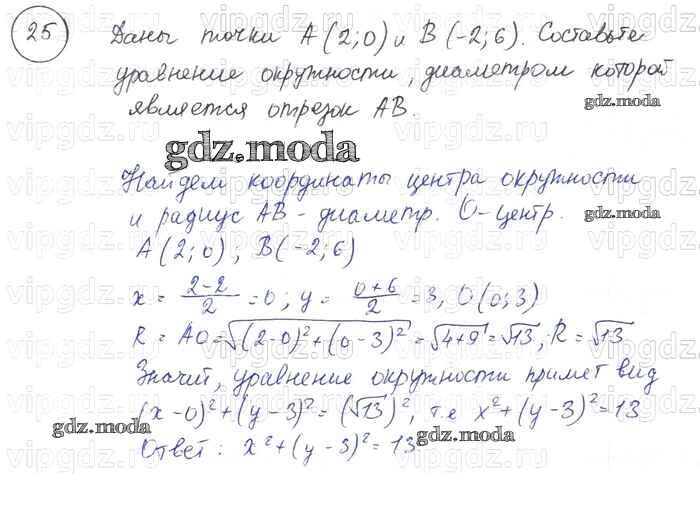 25 Даны точки A(2;0) и B(-2;6). Составьте
уравнение окружности, диаметром которой
является отрезок AB.
gdz.moda
gdz.moda
Найдем координаты центра окружности
и радиус AB - диаметр. O-центр.
gdz.moda
A(2;0), B(-2;6)
x = \frac{2-2}{2} = 0; y = \frac{0+6}{2} = 3, O(0;3)
R = AO = √((2-0)²+(0-3)²) = √(4+9) = √13, R = √13
Значит, уравнение окружности примет вид
(x-0)²+(y-3)²=(√13)², т.е x²+(y-3)²=13
gdz.moda
gdz.moda
Ответ: x²+(y-3)²=13
vipgdz.com